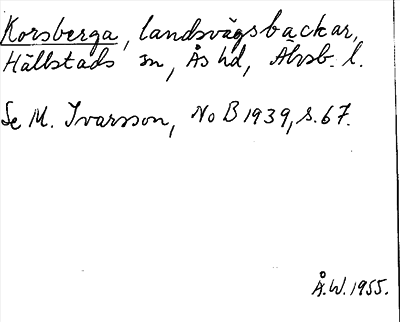 Korsberga, landsvägsbackar,
Hällstads sn, Ås hd, Älvsb. l.
Se M. Ivarsson, NoB 1939, s. 67.
Å.W. 1955.